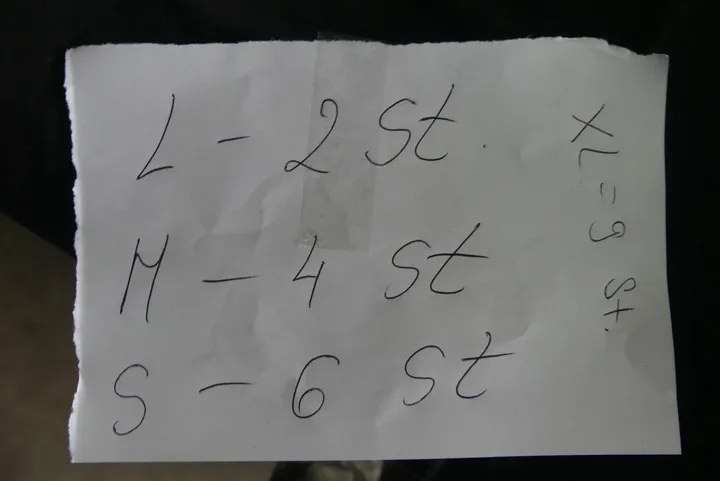 L - 2 St.
M - 4 St
S - 6 St
XL = 9 St.